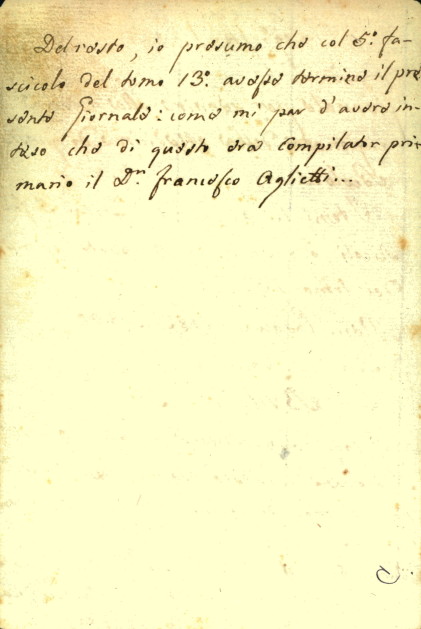 Del resto, io presumo che col 5.º fa-
scicolo del tomo 13.º avesse termine il pre
sente Giornale: come mi par d'avere in-
teso che di questo era Compilator pri-
mario il D.r Francesco Aglietti...